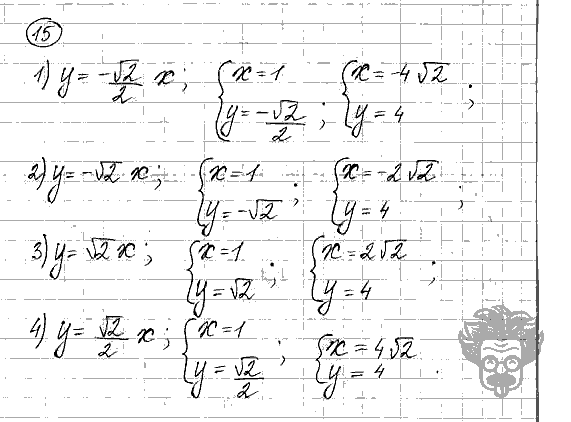 15
1) y = -√2/2 x; { x = 1 y = -√2/2 ; { x = -4√2 y = 4 ;
2) y = -√2 x; { x = 1 y = -√2 ; { x = -2√2 y = 4 ;
3) y = √2 x; { x = 1 y = √2 ; { x = 2√2 y = 4 ;
4) y = √2/2 x; { x = 1 y = √2/2 ; { x = 4√2 y = 4 .